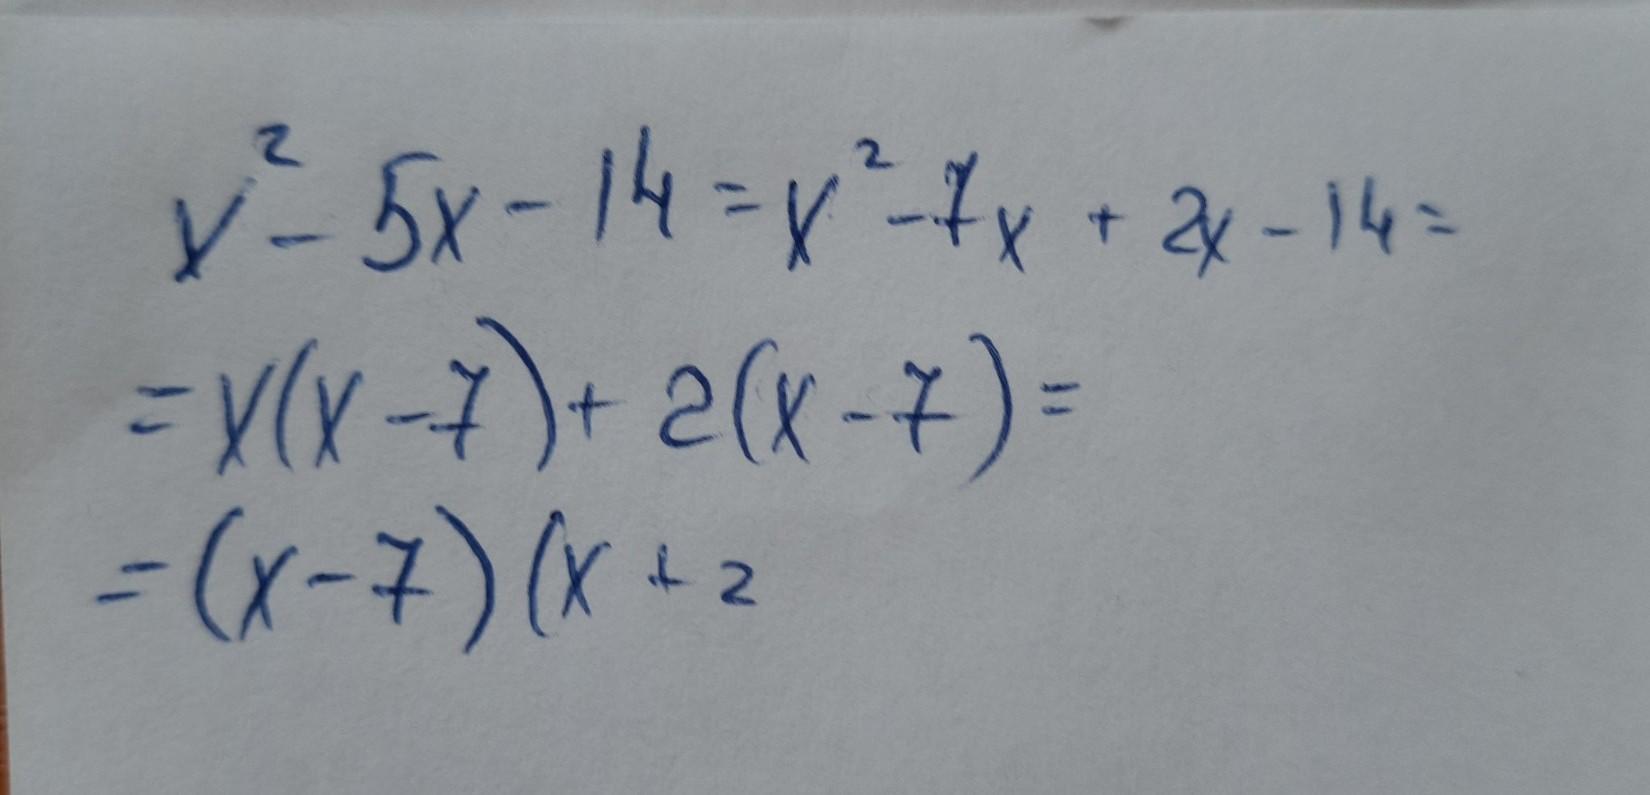 x² - 5x - 14 = x² - 7x + 2x - 14 =
= x(x - 7) + 2(x - 7) =
= (x - 7) (x + 2